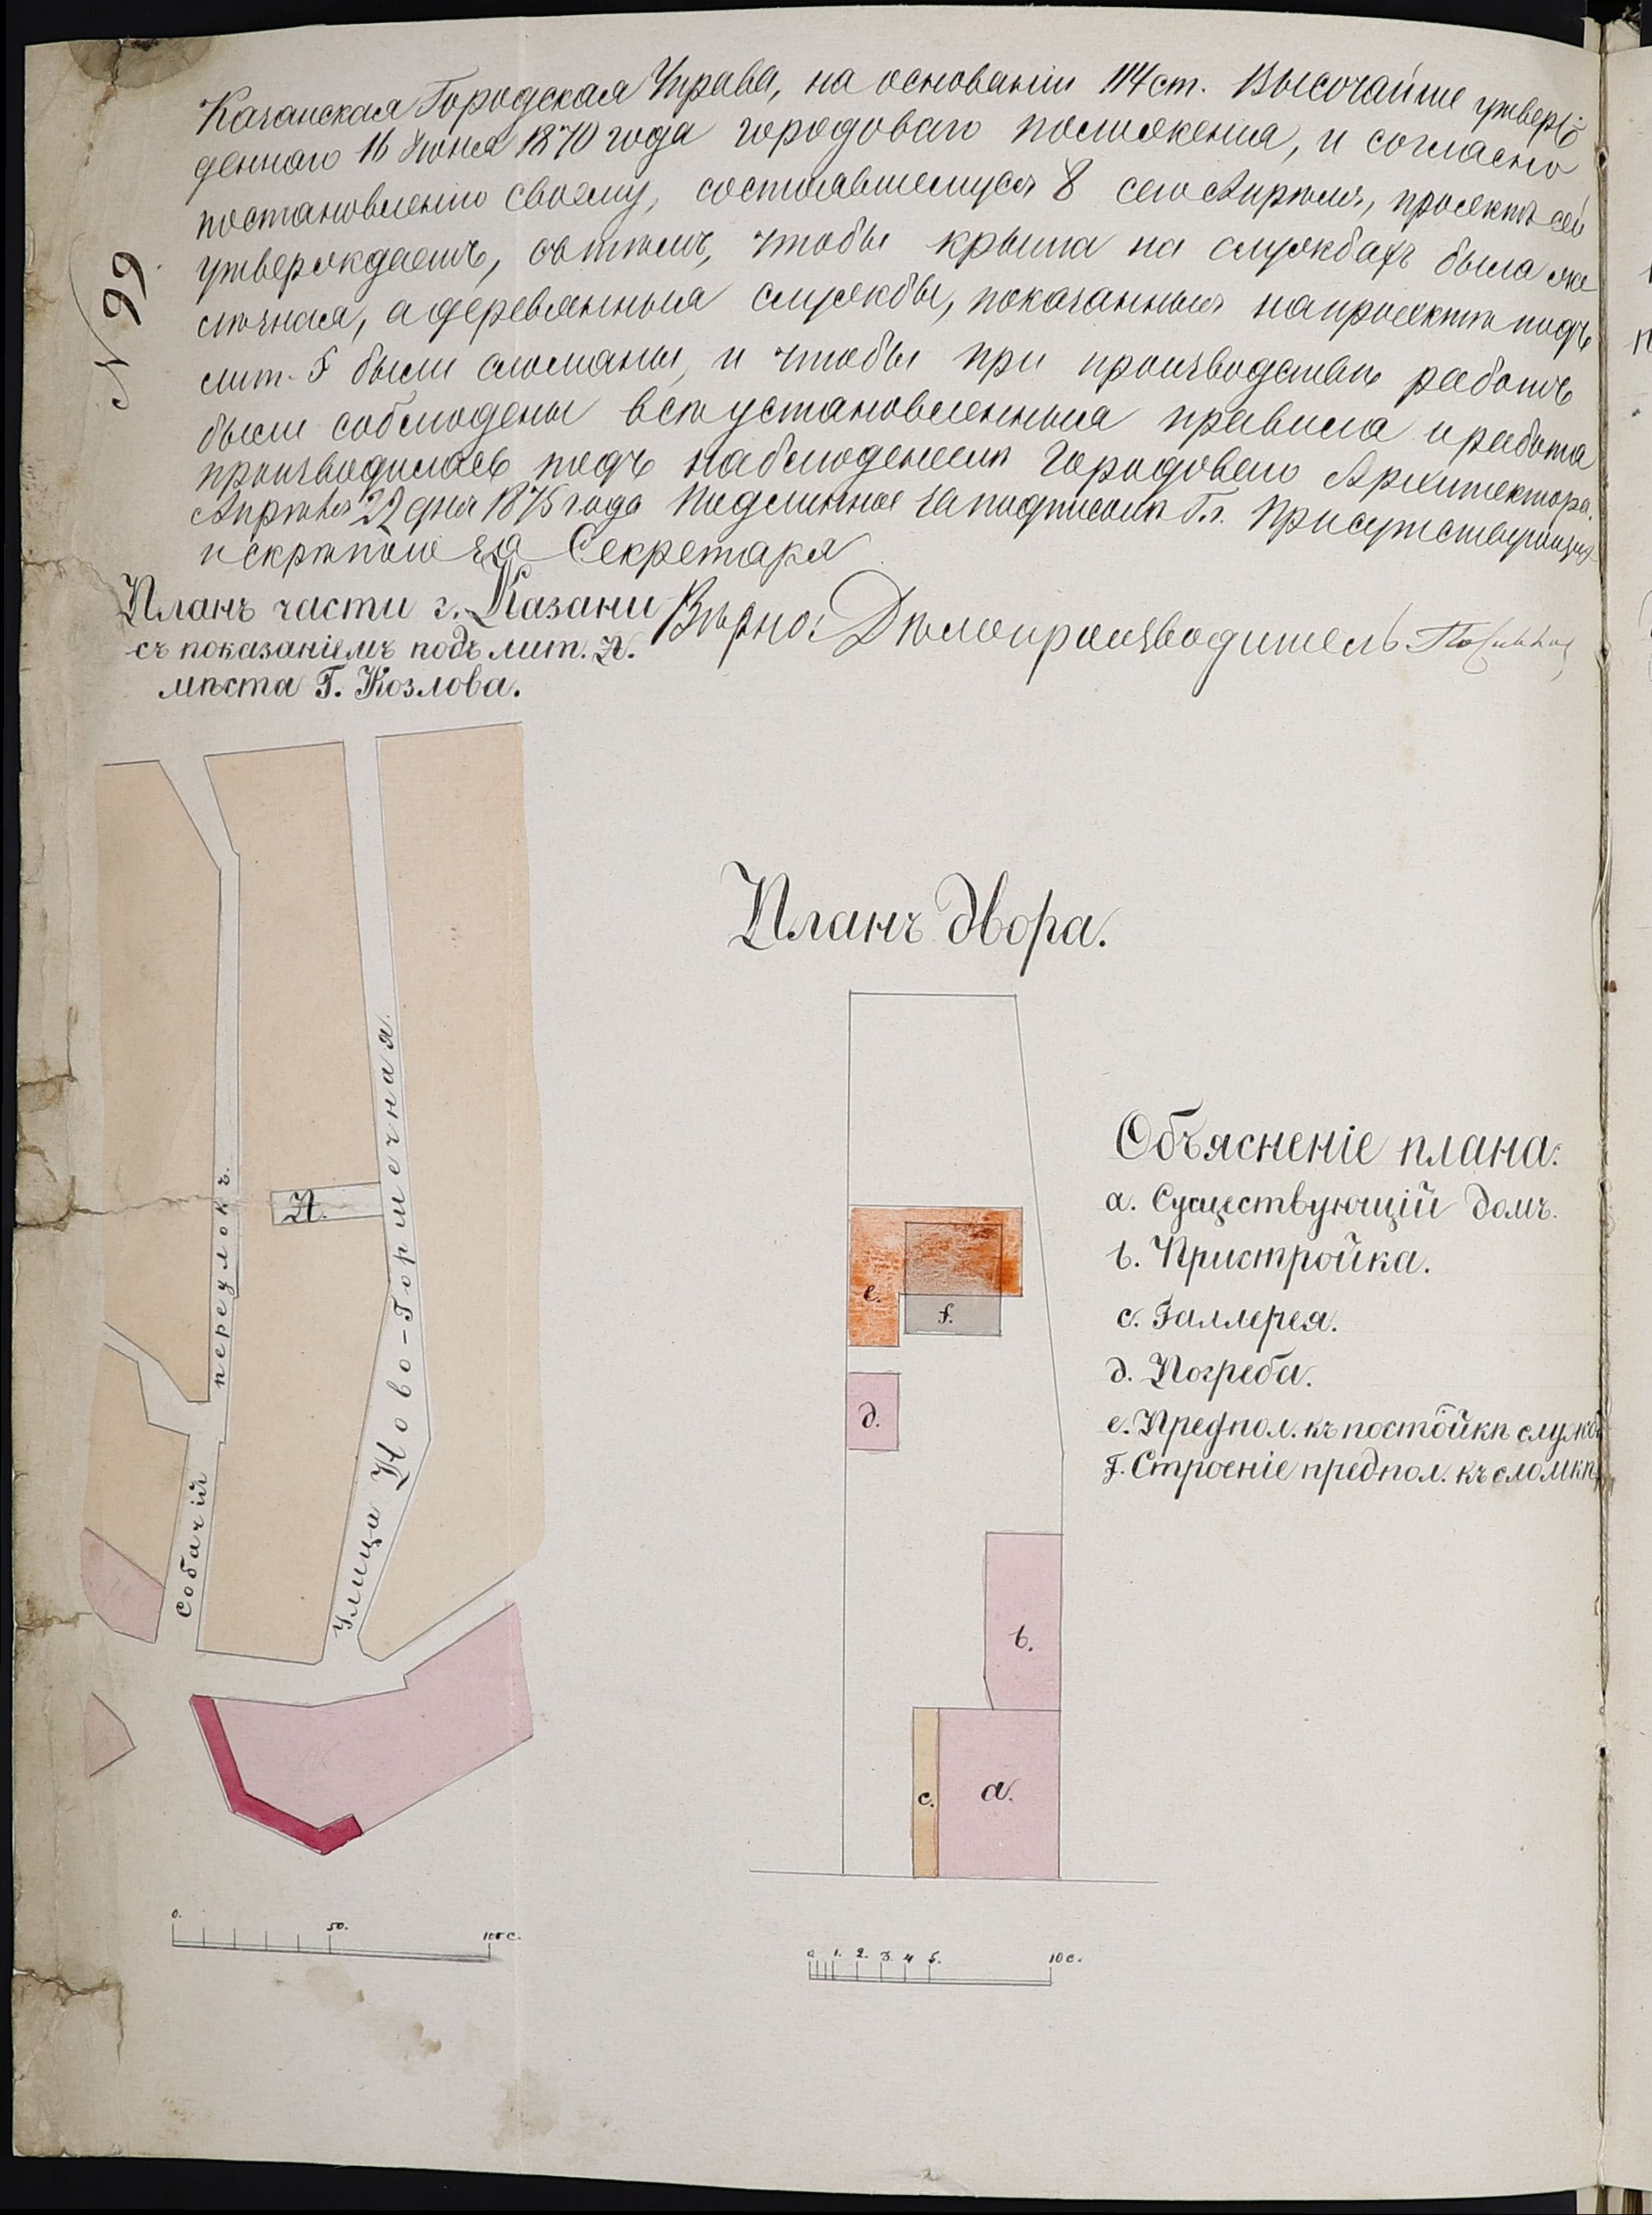 Казанская Городская Управа, на основаніи 114 ст. Высочайше утверж
деннаго 16 Іюня 1870 года городоваго положенія, и согласно
постановленію своему, состоявшемуся 8 сего Апрѣля, проектъ сей
утверждаетъ, съ тѣмъ, чтобы крыша на службахъ была же
лѣзная, а деревянныя службы, показанныя на проектѣ подъ
лит. f были сломаны, и чтобы при производствѣ работъ
были соблюдены всѣ установленныя правила и работа
производилась подъ наблюденіемъ Городоваго Архитектора.
Апрѣля 22 дня 1875 года Подлинное за подписомъ Гг. Присутствующихъ
и скрѣпою за Секретаря
Вѣрно: Дѣлопроизводитель
N 99
Планъ части г. Казани
съ показаніемъ подъ лит. А.
мѣста Г. Козлова.
Собачій переулокъ.
А.
Улица Ново-Горшечная.
0. 50. 100 с.
Планъ двора.
e.
f.
d.
b.
c.
a.
0 1. 2. 3. 4 5. 10 с.
Объясненіе плана:
a. Существующій домъ.
b. Пристройка.
c. Галлерея.
d. Погреба.
e. Предпол. къ постойкѣ служб
f. Строеніе предпол. къ сломкѣ